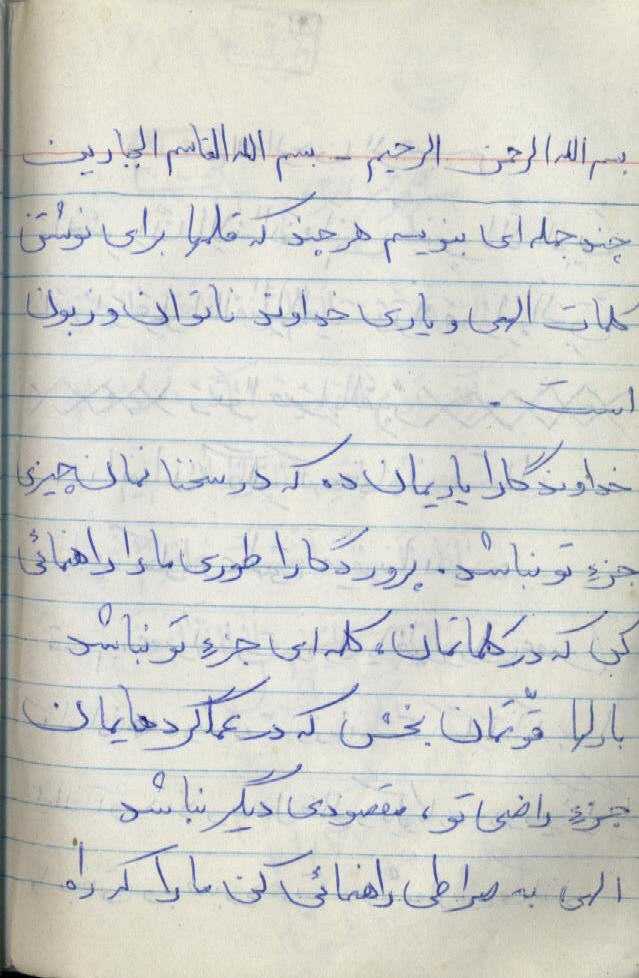 بسم الله الرحمن الرحیم - بسم الله القاسم الجبارین
چند جمله ای بنویسم هر چند که قلمها برای نوشتن
کلمات الهی و یاری خداوند ناتوان و زبون
است .
خداوندگارا یاریمان ده که در سخنانمان چیزی
جزء تو نباشد . پروردگارا طوری ما را راهنمائی
کن که در کلماتمان ، کلمه ای جزء تو نباشد
بارالها قوّتمان بخش که در عملکردهایمان
جزء راضی تو ، مقصودی دیگر نباشد
الهی به صراطی راهنمائی کن ما را که راه